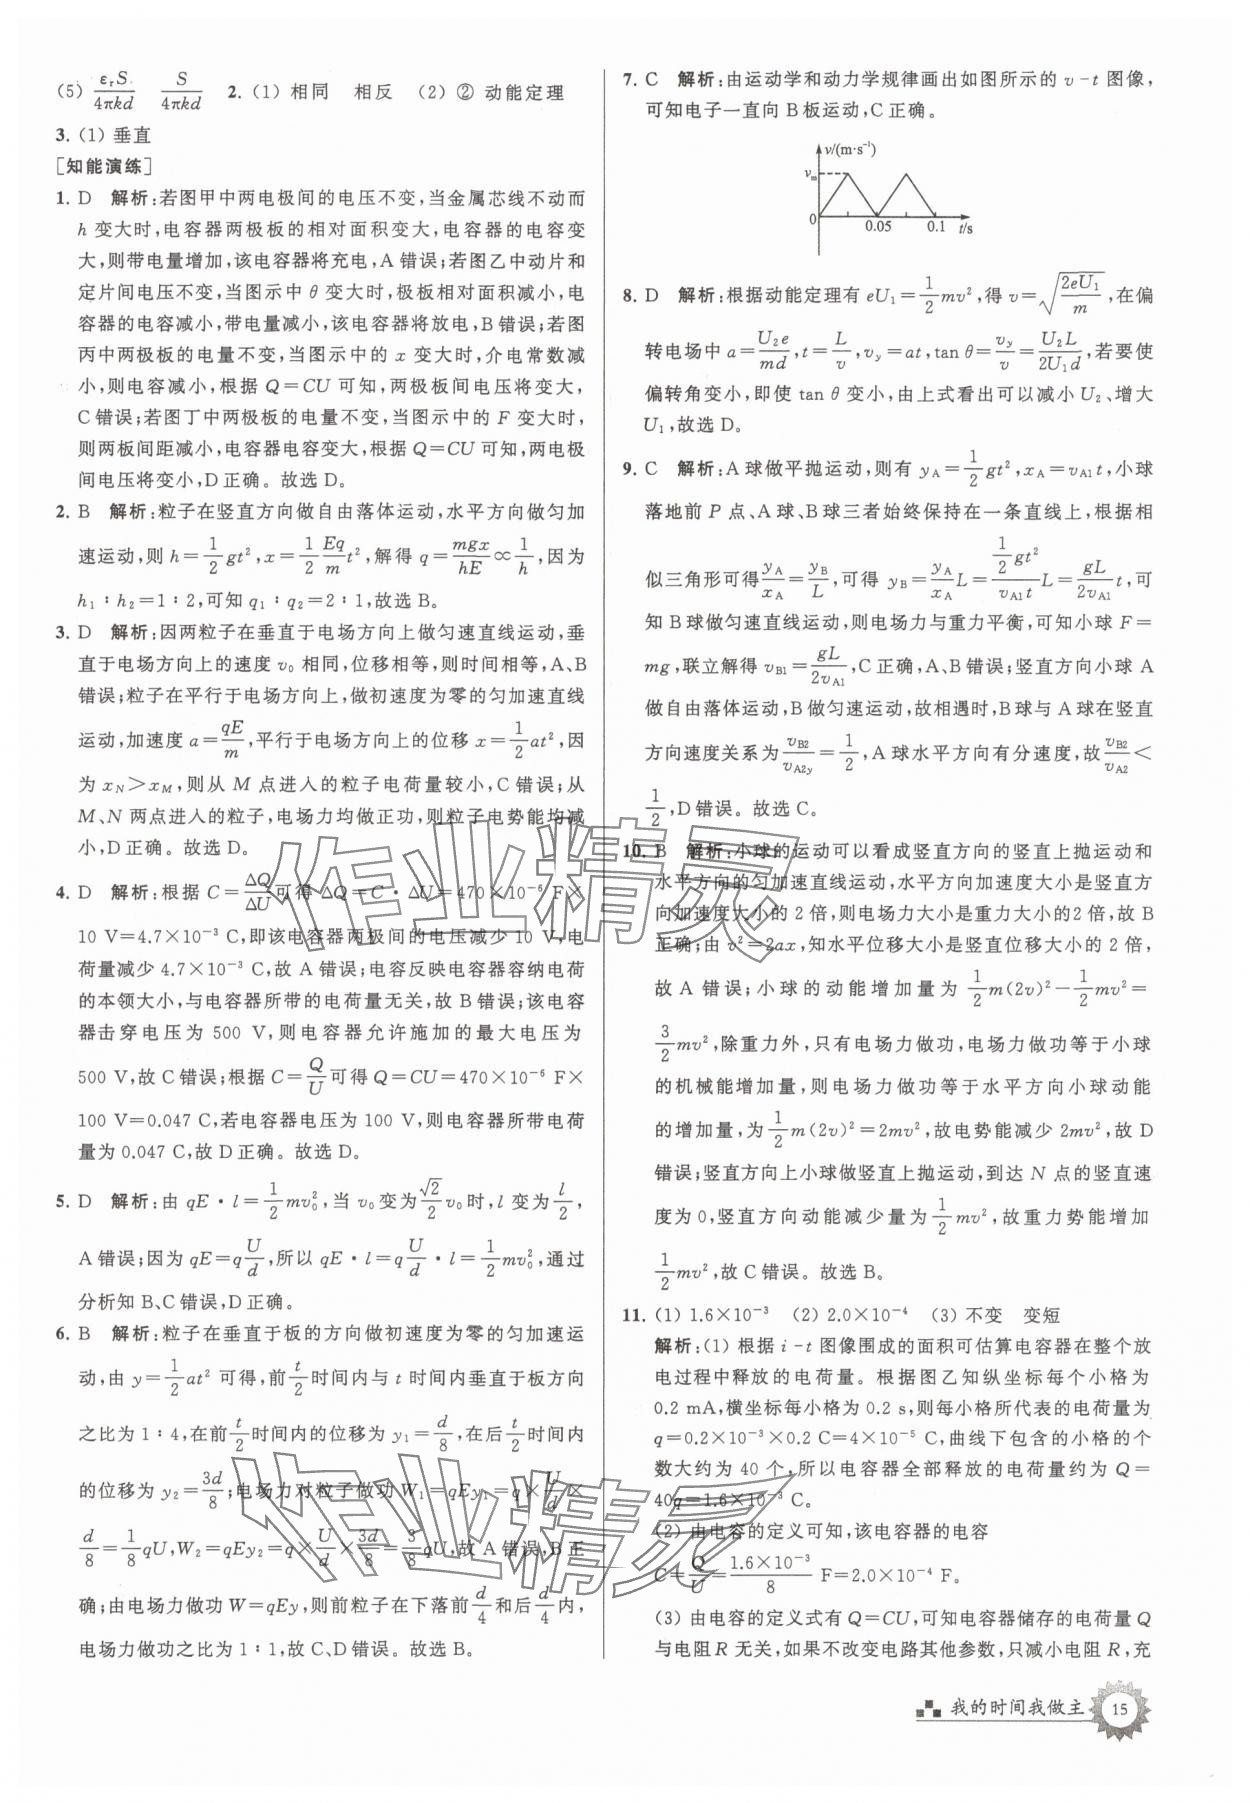 (5) εᵣS/4πkd　S/4πkd　2. (1) 相同　相反　(2) ② 动能定理
3. (1) 垂直
[知能演练]
1. D　解析:若图甲中两电极间的电压不变,当金属芯线不动而
h 变大时,电容器两极板的相对面积变大,电容器的电容变
大,则带电量增加,该电容器将充电,A 错误;若图乙中动片和
定片间电压不变,当图示中 θ 变大时,极板相对面积减小,电
容器的电容减小,带电量减小,该电容器将放电,B 错误;若图
丙中两极板的电量不变,当图示中的 x 变大时,介电常数减
小,则电容减小,根据 Q=CU 可知,两极板间电压将变大,
C 错误;若图丁中两极板的电量不变,当图示中的 F 变大时,
则两板间距减小,电容器电容变大,根据 Q=CU 可知,两电极
间电压将变小,D 正确。故选 D。
2. B　解析:粒子在竖直方向做自由落体运动,水平方向做匀加
速运动,则 h=1/2gt²,x=1/2 Eq/m t²,解得 q=mgx/hE∝1/h,因为
h₁∶h₂=1∶2,可知 q₁∶q₂=2∶1,故选 B。
3. D　解析:因两粒子在垂直于电场方向上做匀速直线运动,垂
直于电场方向上的速度 v₀ 相同,位移相等,则时间相等,A、B
错误;粒子在平行于电场方向上,做初速度为零的匀加速直线
运动,加速度 a=qE/m,平行于电场方向上的位移 x=1/2at²,因
为 x_N>x_M,则从 M 点进入的粒子电荷量较小,C 错误;从
M、N 两点进入的粒子,电场力均做正功,则粒子电势能均减
小,D 正确。故选 D。
4. D　解析:根据 C=ΔQ/ΔU可得 ΔQ=C・ΔU=470×10⁻⁶ F×
10 V=4.7×10⁻³ C,即该电容器两极间的电压减少 10 V,电
荷量减少 4.7×10⁻³ C,故 A 错误;电容反映电容器容纳电荷
的本领大小,与电容器所带的电荷量无关,故 B 错误;该电容
器击穿电压为 500 V,则电容器允许施加的最大电压为
500 V,故 C 错误;根据 C=Q/U可得 Q=CU=470×10⁻⁶ F×
100 V=0.047 C,若电容器电压为 100 V,则电容器所带电荷
量为 0.047 C,故 D 正确。故选 D。
5. D　解析:由 qE・l=1/2mv₀²,当 v₀ 变为√2/2v₀ 时,l 变为l/2,
A 错误;因为 qE=qU/d,所以 qE・l=qU/d・l=1/2mv₀²,通过
分析知 B、C 错误,D 正确。
6. B　解析:粒子在垂直于板的方向做初速度为零的匀加速运
动,由 y=1/2at² 可得,前t/2时间内与 t 时间内垂直于板方向
之比为 1∶4,在前t/2时间内的位移为 y₁=d/8,在后t/2时间内
的位移为 y₂=3d/8;电场力对粒子做功 W₁=qEy₁=q×U/d×
d/8=1/8qU,W₂=qEy₂=q×U/d×3d/8=3/8qU,故 A 错误,B 正
确;由电场力做功 W=qEy,则前粒子在下落前d/4和后d/4内,
电场力做功之比为 1∶1,故 C、D 错误。故选 B。
7. C　解析:由运动学和动力学规律画出如图所示的 v-t 图像,
可知电子一直向 B 板运动,C 正确。
v/(m·s⁻¹)
vₘ
0　0.05　0.1　t/s
8. D　解析:根据动能定理有 eU₁=1/2mv²,得 v=√(2eU₁/m),在偏
转电场中 a=U₂e/md,t=L/v,v_y=at,tan θ=v_y/v=U₂L/2U₁d,若要使
偏转角变小,即使 tan θ 变小,由上式看出可以减小 U₂、增大
U₁,故选 D。
9. C　解析:A 球做平抛运动,则有 y_A=1/2gt²,x_A=v_A1t,小球
落地前 P 点、A 球、B 球三者始终保持在一条直线上,根据相
似三角形可得y_A/x_A=y_B/L,可得 y_B=y_A/x_A L=(1/2gt²)/(v_A1t) L=gL/2v_A1 t,可
知 B 球做匀速直线运动,则电场力与重力平衡,可知小球 F=
mg,联立解得 v_B1=gL/2v_A1,C 正确,A、B 错误;竖直方向小球 A
做自由落体运动,B 做匀速运动,故相遇时,B 球与 A 球在竖直
方向速度关系为v_B2/v_A2y=1/2,A 球水平方向有分速度,故v_B2/v_A2<
1/2,D 错误。故选 C。
10. B　解析:小球的运动可以看成竖直方向的竖直上抛运动和
水平方向的匀加速直线运动,水平方向加速度大小是竖直方
向加速度大小的 2 倍,则电场力大小是重力大小的2 倍,故 B
正确;由 v²=2ax,知水平位移大小是竖直位移大小的 2 倍,
故 A 错误;小球的动能增加量为 1/2m(2v)²-1/2mv²=
3/2mv²,除重力外,只有电场力做功,电场力做功等于小球
的机械能增加量,则电场力做功等于水平方向小球动能
的增加量,为1/2m(2v)²=2mv²,故电势能减少 2mv²,故 D
错误;竖直方向上小球做竖直上抛运动,到达 N 点的竖直速
度为 0,竖直方向动能减少量为1/2mv²,故重力势能增加
1/2mv²,故 C 错误。故选 B。
11. (1) 1.6×10⁻³　(2) 2.0×10⁻⁴　(3) 不变　变短
解析:(1) 根据 i-t 图像围成的面积可估算电容器在整个放
电过程中释放的电荷量。根据图乙知纵坐标每个小格为
0.2 mA,横坐标每小格为 0.2 s,则每小格所代表的电荷量为
q=0.2×10⁻³×0.2 C=4×10⁻⁵ C,曲线下包含的小格的个
数大约为 40 个,所以电容器全部释放的电荷量约为 Q=
40q=1.6×10⁻³ C。
(2) 由电容的定义可知,该电容器的电容
C=Q/U=1.6×10⁻³/8 F=2.0×10⁻⁴ F。
(3) 由电容的定义式有 Q=CU,可知电容器储存的电荷量 Q
与电阻 R 无关,如果不改变电路其他参数,只减小电阻 R,充
我的时间我做主　15
作业精灵
作业精灵